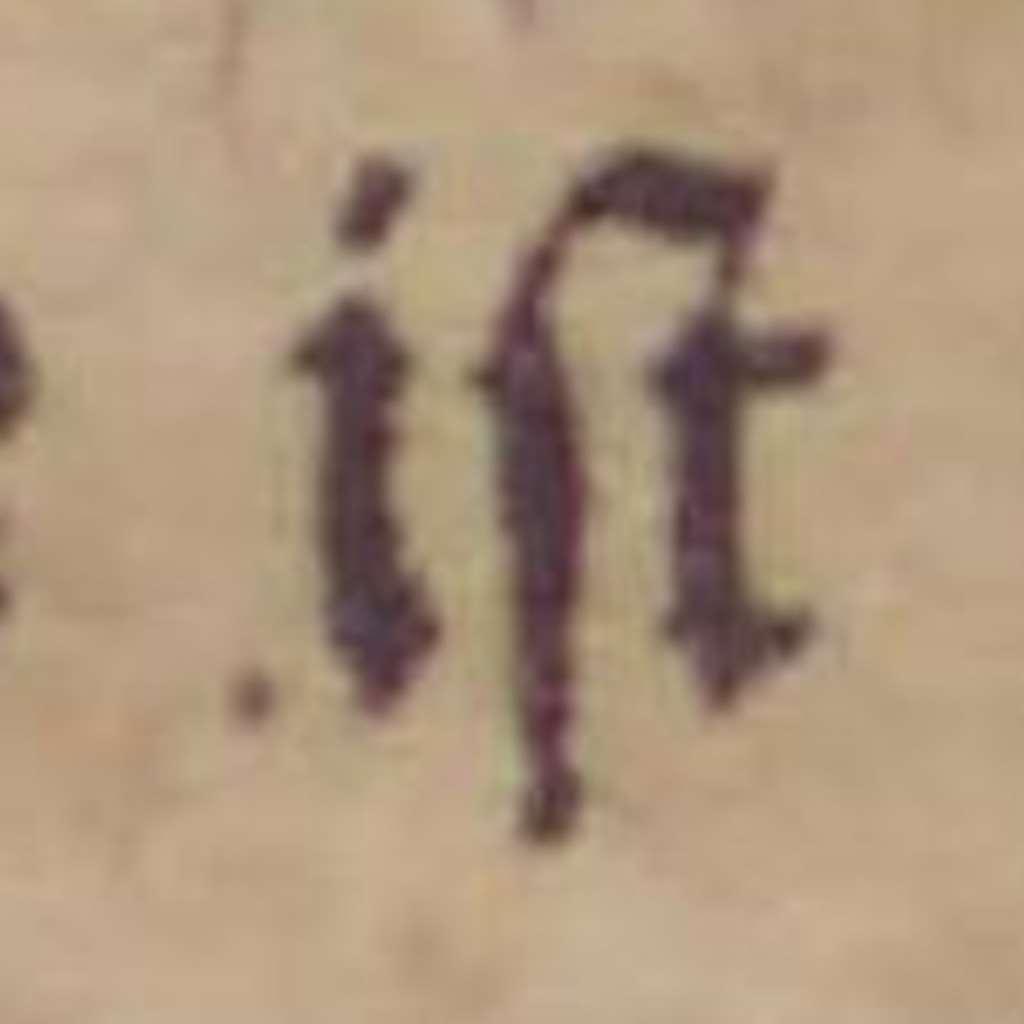 iſt